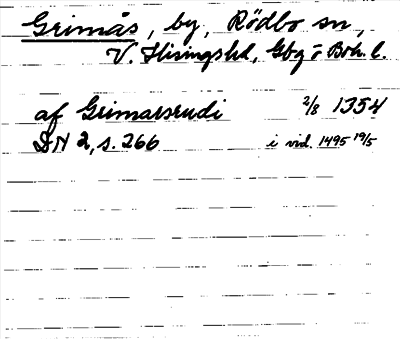 Grimås, by, Rödbo sn,
V. Hisingshd, Gbg o Boh. l.
af Grimarsrudi 2/8 1354
DN 2, s. 266 i vid. 1495 19/5